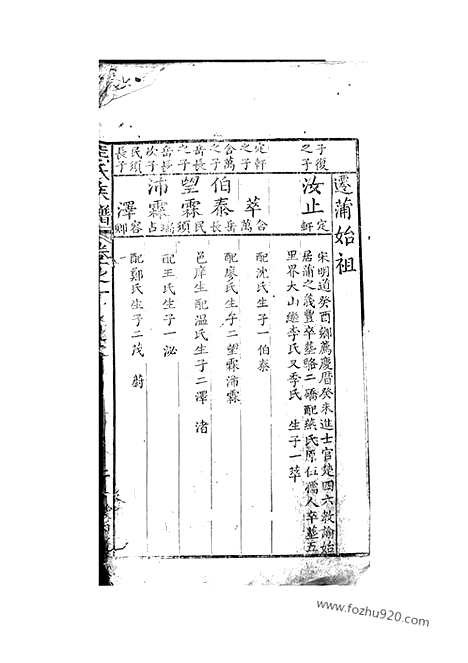 遷蒲始祖
子復之子
汝止
定軒
宋明道癸酉鄉薦慶曆癸未進士官楚四六教諭始
居蒲之義豐卒墓略二礄配蔡氏原伍儒人卒墓五
里界大山繼李氏又季氏 生子一萃
定軒之子
萃
合萬
配沈氏生子一伯泰
合萬之子
伯泰
岳長
配廖氏生子二望霖沛霖
岳長之子
望霖
民須
邑庠生配温氏生子二澤 渚
岳長次子
沛霖
占瑞
配王氏生子一泌
民須長子
澤
容卿
配鄭氏生子二茂 蔚
氏族譜
www.fozhu920.com